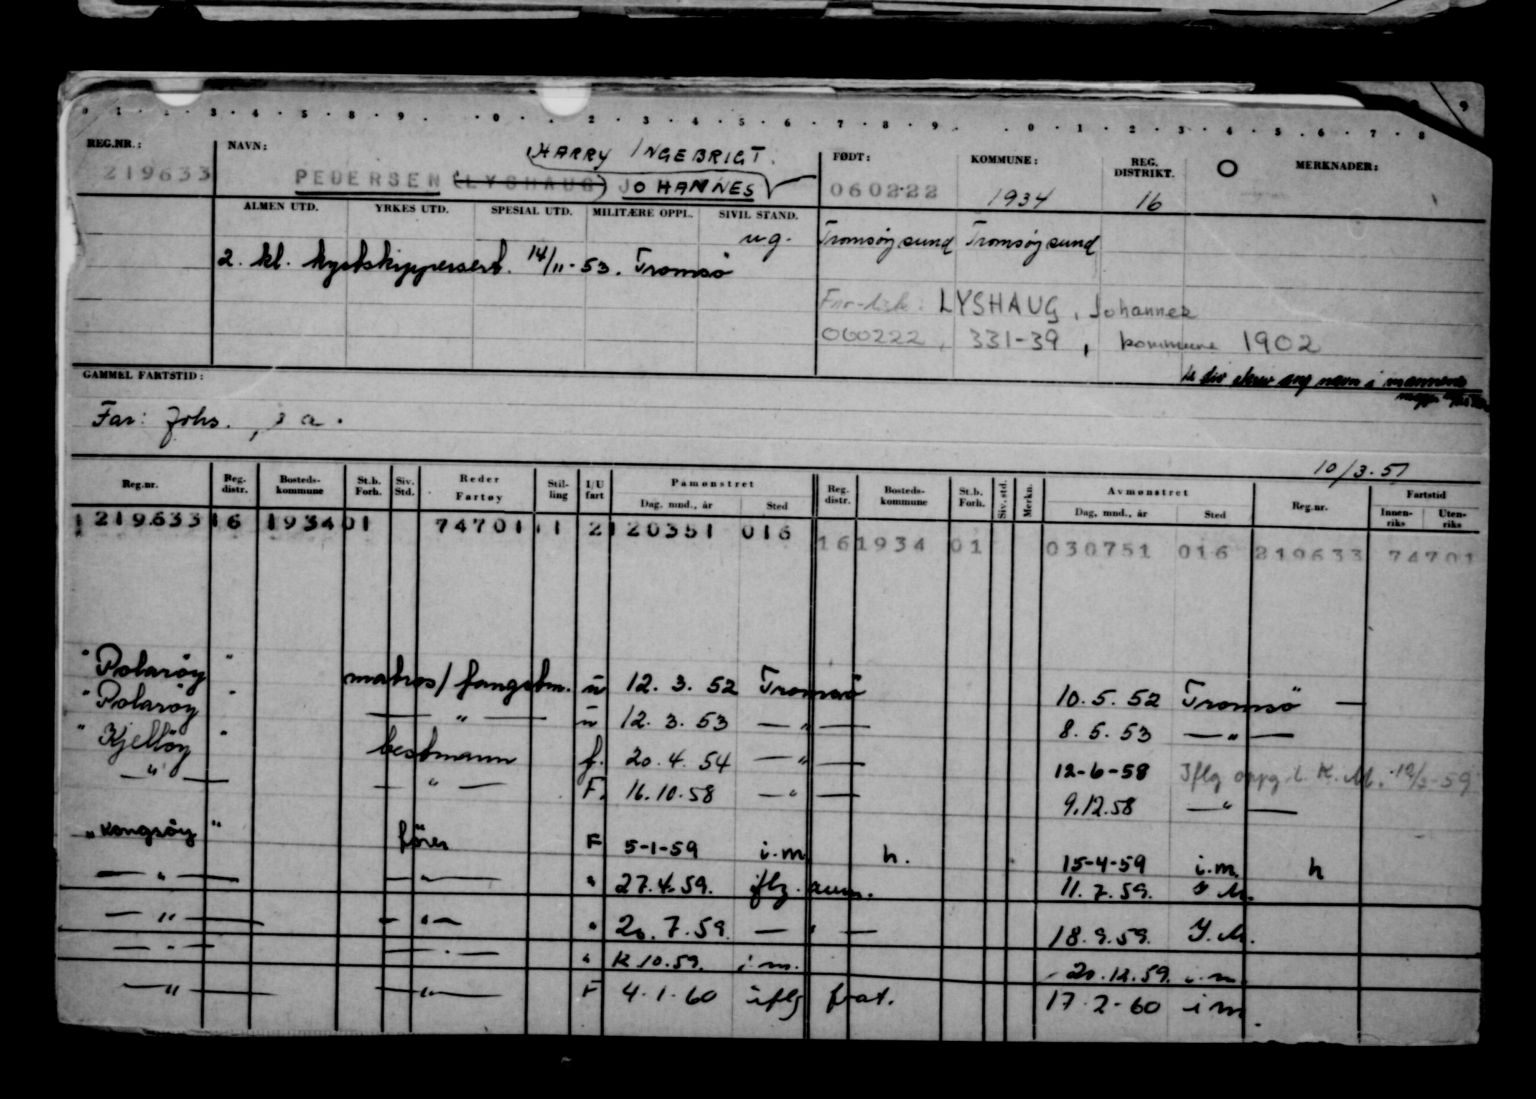 REG.NR.: NAVN: HARRY INGEBRIGT. FØDT: KOMMUNE: REG. DISTRIKT. MERKNADER:
219633 PEDERSEN (LYSHAUG) JOHANNES 060222 1934 16
ALMEN UTD. YRKES UTD. SPESIAL UTD. MILITÆRE OPPL. SIVIL STAND.
ug. Tromsøysund Tromsøysund
2. kl. kystskippersert. 14/11-53. Tromsø
LYSHAUG, Johannes
060222, 331-39, kommune 1902
GAMMEL FARTSTID:
Far: Johs., s a.
10/3-51
Reg.nr. Reg. distr. Bosteds-kommune St.b. Forh. Siv. Std. Reder Fartøy Stil-ling I/U fart Påmønstret Dag, mnd., år Sted Reg. distr. Bosteds-kommune St.b. Forh. Siv. std. Merkn. Avmønstret Dag, mnd., år Sted Reg.nr. Fartstid Innen-riks Uten-riks
219633 16 1934 01 74701 11 2 120351 016
16 1934 01 030751 016 219633 74701
"Polarøy" matros/fangstm. u 12. 3. 52 Tromsø 10. 5. 52 Tromsø —
"Polarøy" — " — u 12. 3. 53 — " — 8. 5. 53 — " —
"Kjelløy" bestmann f. 20. 4. 54 — " — 12-6-58 Iflg oppg. t. K. M.
— " — — " — F. 16. 10. 58 — " — 9.12.58 — " —
"Kongsøy" fører F 5-1-59 i.m h. 15-4-59 i.m. h
— " — — " — " 27.4.59. iflg. 11. 7. 59.
— " — — " — " 20. 7. 59. — " — 18. 9. 59. I.M.
— " — — " — " 10. 59. i.m. 20. 12. 59. i.m.
— " — — " — F 4. 1. 60 iflg frat. 17-2-60 i m.